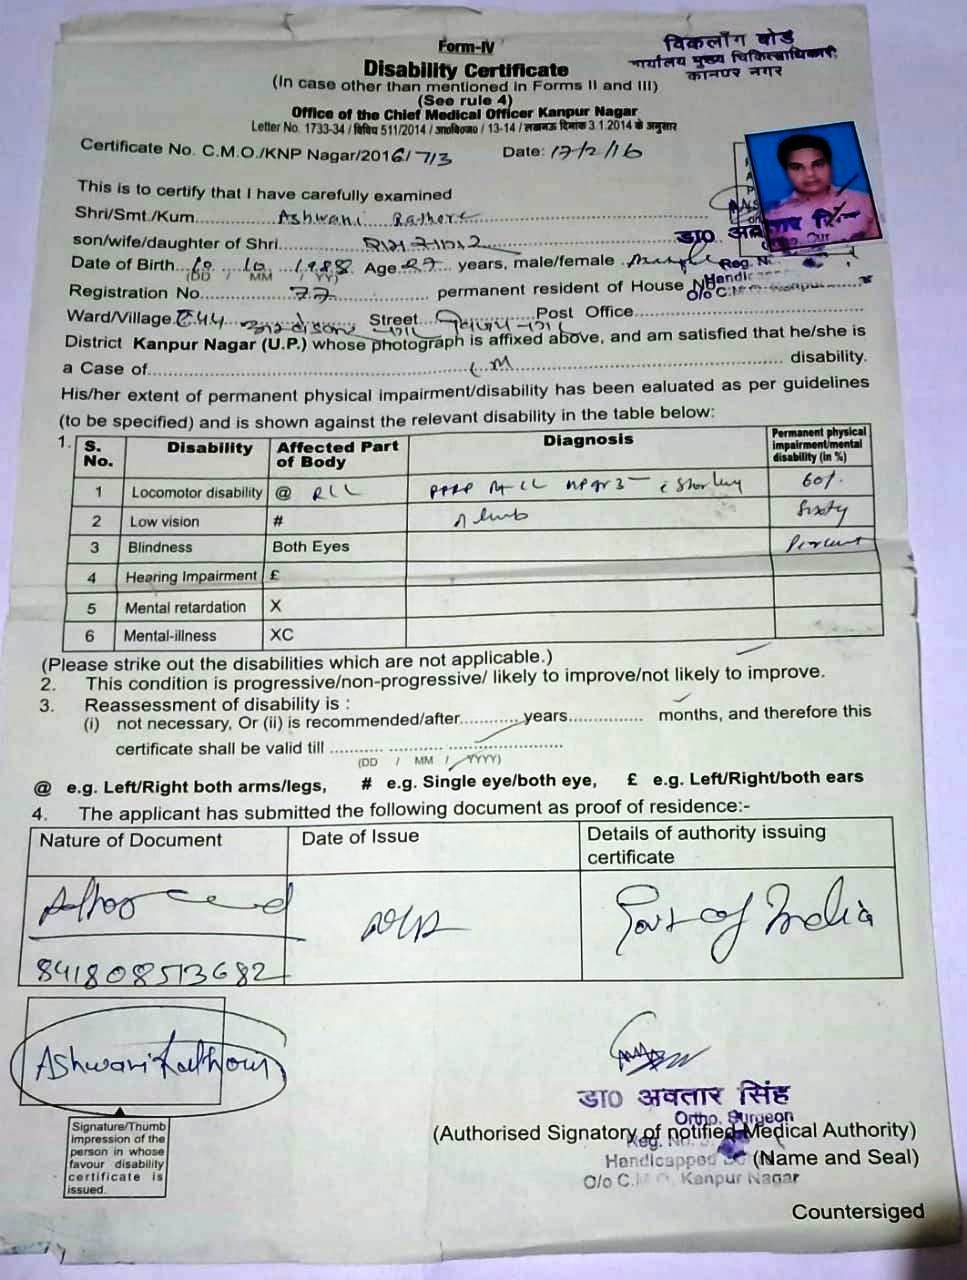 Form-IV
विकलाँग बोर्ड
कार्यालय मुख्य चिकित्साधिकारी
कानपुर नगर
Disability Certificate
(In case other than mentioned in Forms II and III)
(See rule 4)
Office of the Chief Medical Officer Kanpur Nagar
Letter No. 1733-34 / विविध 511/2014 / / 13-14 / लखनऊ दिनांक 3.1.2014 के अनुसार
Certificate No. C.M.O./KNP Nagar/2016/713 Date: 17/2/16
This is to certify that I have carefully examined
Shri/Smt./Kum. Ashwani Rathore
son/wife/daughter of Shri
डा० अवतार सिं
Date of Birth 10 10 1988 Age 27 years, male/female male
(DD / MM / YY)
Reg. N
Registration No. 77 permanent resident of House No
Handic
O/o C.M.O. Kanpur
Ward/Village Street Post Office
District Kanpur Nagar (U.P.) whose photograph is affixed above, and am satisfied that he/she is
a Case of disability.
His/her extent of permanent physical impairment/disability has been ealuated as per guidelines
(to be specified) and is shown against the relevant disability in the table below:
1. S. No. Disability Affected Part of Body Diagnosis Permanent physical impairment/mental disability (in %)
1 Locomotor disability @ RLL 60%
2 Low vision # limb Sixty
3 Blindness Both Eyes Percent
4 Hearing Impairment £
5 Mental retardation X
6 Mental-illness XC
(Please strike out the disabilities which are not applicable.)
2. This condition is progressive/non-progressive/ likely to improve/not likely to improve.
3. Reassessment of disability is :
(i) not necessary, Or (ii) is recommended/after............years............... months, and therefore this
certificate shall be valid till
(DD / MM / YYYY)
@ e.g. Left/Right both arms/legs, # e.g. Single eye/both eye, £ e.g. Left/Right/both ears
4. The applicant has submitted the following document as proof of residence:-
Nature of Document Date of Issue Details of authority issuing certificate
Govt of India
841808513682
Ashwani Rathour
Signature/Thumb
impression of the
person in whose
favour disability
certificate is
issued.
डा० अवतार सिंह
Ortho. Surgeon
(Authorised Signatory of notified Medical Authority)
Reg. No.
Handicapped (Name and Seal)
O/o C.M.O. Kanpur Nagar
Countersiged